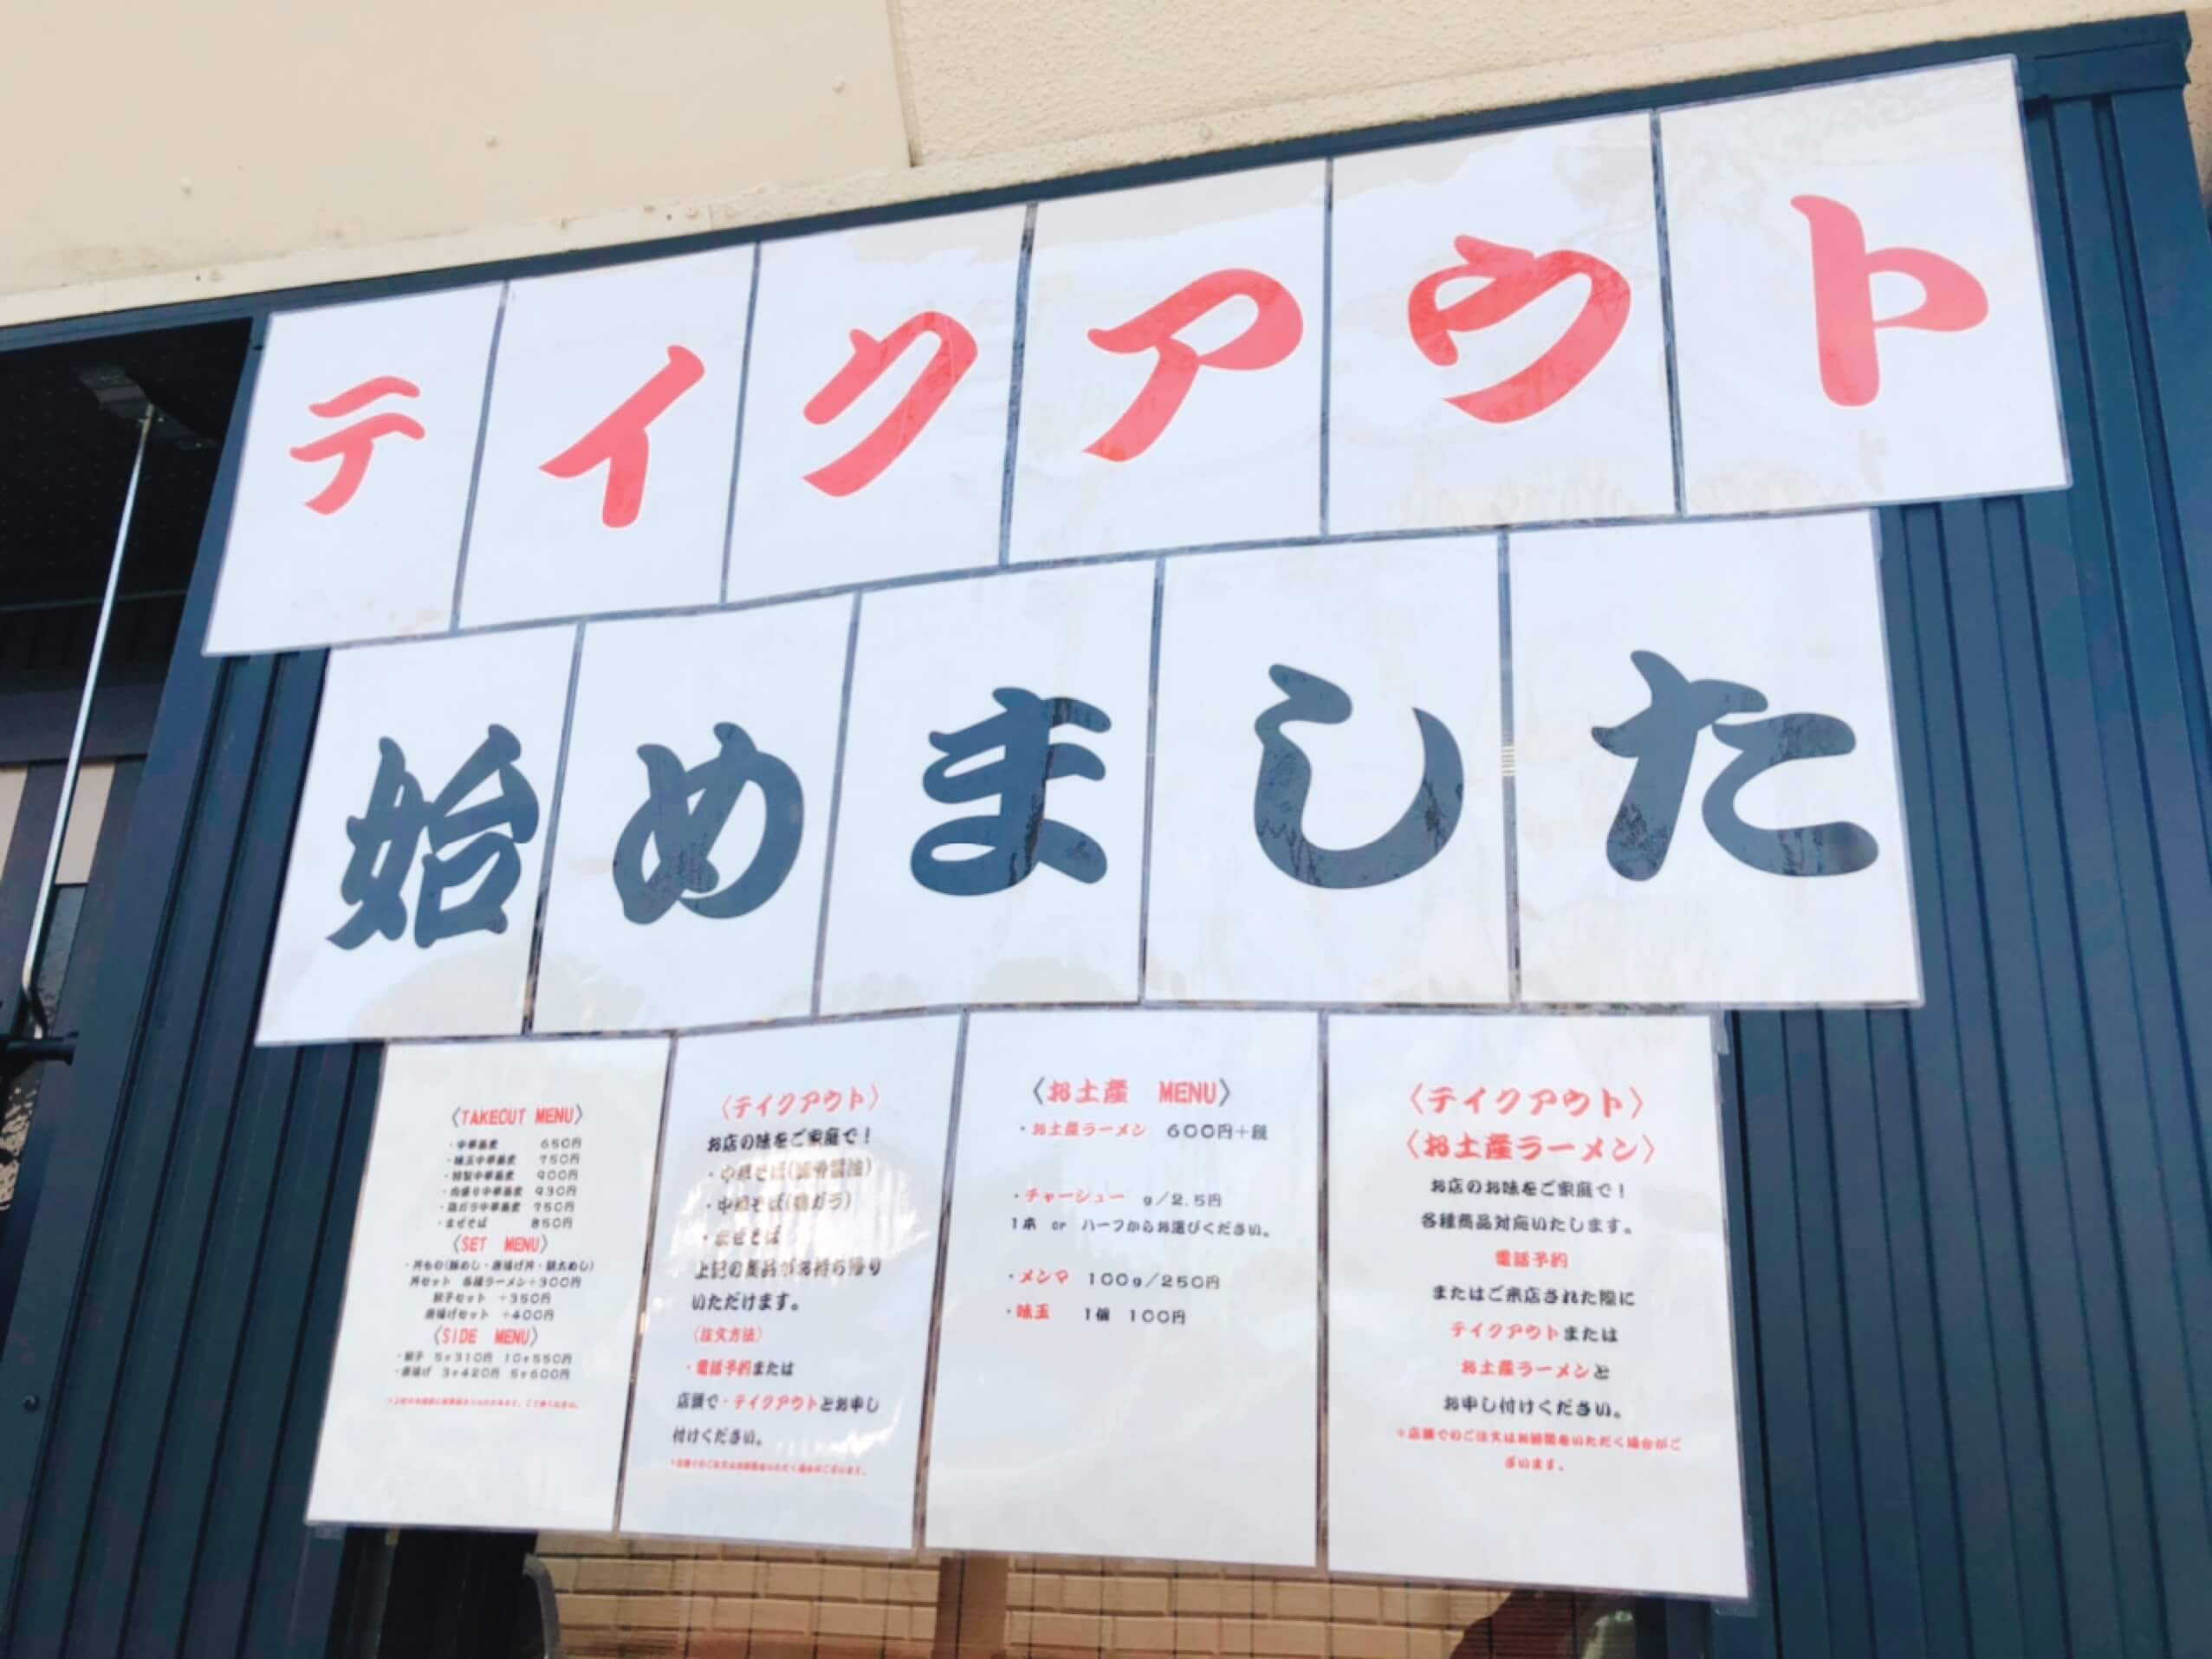 テイクアウト
始めました
〈TAKEOUT MENU〉
・中華蕎麦 650円
・味玉中華蕎麦 750円
・特製中華蕎麦 900円
・肉盛り中華蕎麦 930円
・鶏ガラ中華蕎麦 750円
・まぜそば 850円
〈SET MENU〉
・丼もの(豚めし・唐揚げ丼・明太めし)
丼セット 各種ラーメン+300円
餃子セット +350円
唐揚げセット +400円
〈SIDE MENU〉
・餃子 5ヶ310円 10ヶ550円
・唐揚げ 3ヶ420円 5ヶ600円
〈テイクアウト〉
お店の味をご家庭で!
・中華そば(豚骨醤油)
・中華そば(鶏ガラ)
・まぜそば
上記の商品がお持ち帰り
いただけます。
〈注文方法〉
・電話予約または
店頭で・テイクアウトとお申し
付けください。
*店頭でのご注文はお時間をいただく場合がございます。
〈お土産 MENU〉
・お土産ラーメン 600円+税
・チャーシュー g/2.5円
1本 or ハーフからお選びください。
・メンマ 100g/250円
・味玉 1個 100円
〈テイクアウト〉
〈お土産ラーメン〉
お店のお味をご家庭で!
各種商品対応いたします。
電話予約
またはご来店された際に
テイクアウトまたは
お土産ラーメンと
お申し付けください。
*店頭でのご注文はお時間をいただく場合がご
ざいます。